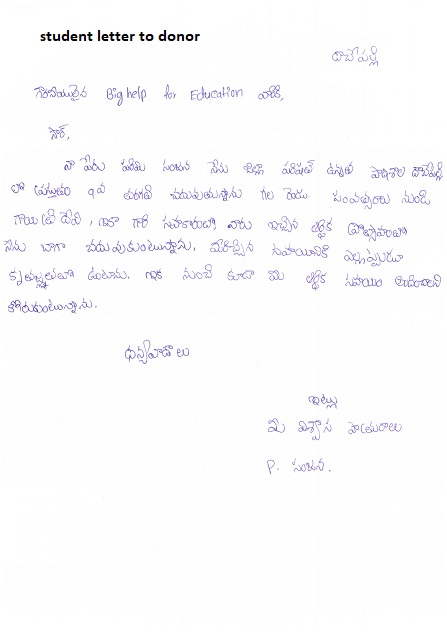 student letter to donor
దాచేపల్లి
గౌరవనీయులైన Big help for Education వారికి,
సార్,
నా పేరు సంజన నేను జిల్లా పరిషత్ ఉన్నత పాఠశాల దాచేపల్లి
లో ప్రస్తుతం 9వ తరగతి చదువుతున్నాను గల రెండు సంవత్సరాలు నుండి
గాయిత్రి దేవి, గారి సహకారంతో వారు ఇచ్చిన ఆర్థిక ప్రోత్సాహంతో
నేను బాగా చదువుకుంటున్నాను. మీరిచ్చిన సహాయానికి ఎల్లప్పుడూ
కృతజ్ఞతలతో ఉంటాను. ఇక నుంచి కూడా మీ ఆర్థిక సహాయం అందించాలని
కోరుకుంటున్నాను.
ధన్యవాదాలు
ఇట్లు
మీ విశ్వాస పాత్రురాలు
P. సంజన.